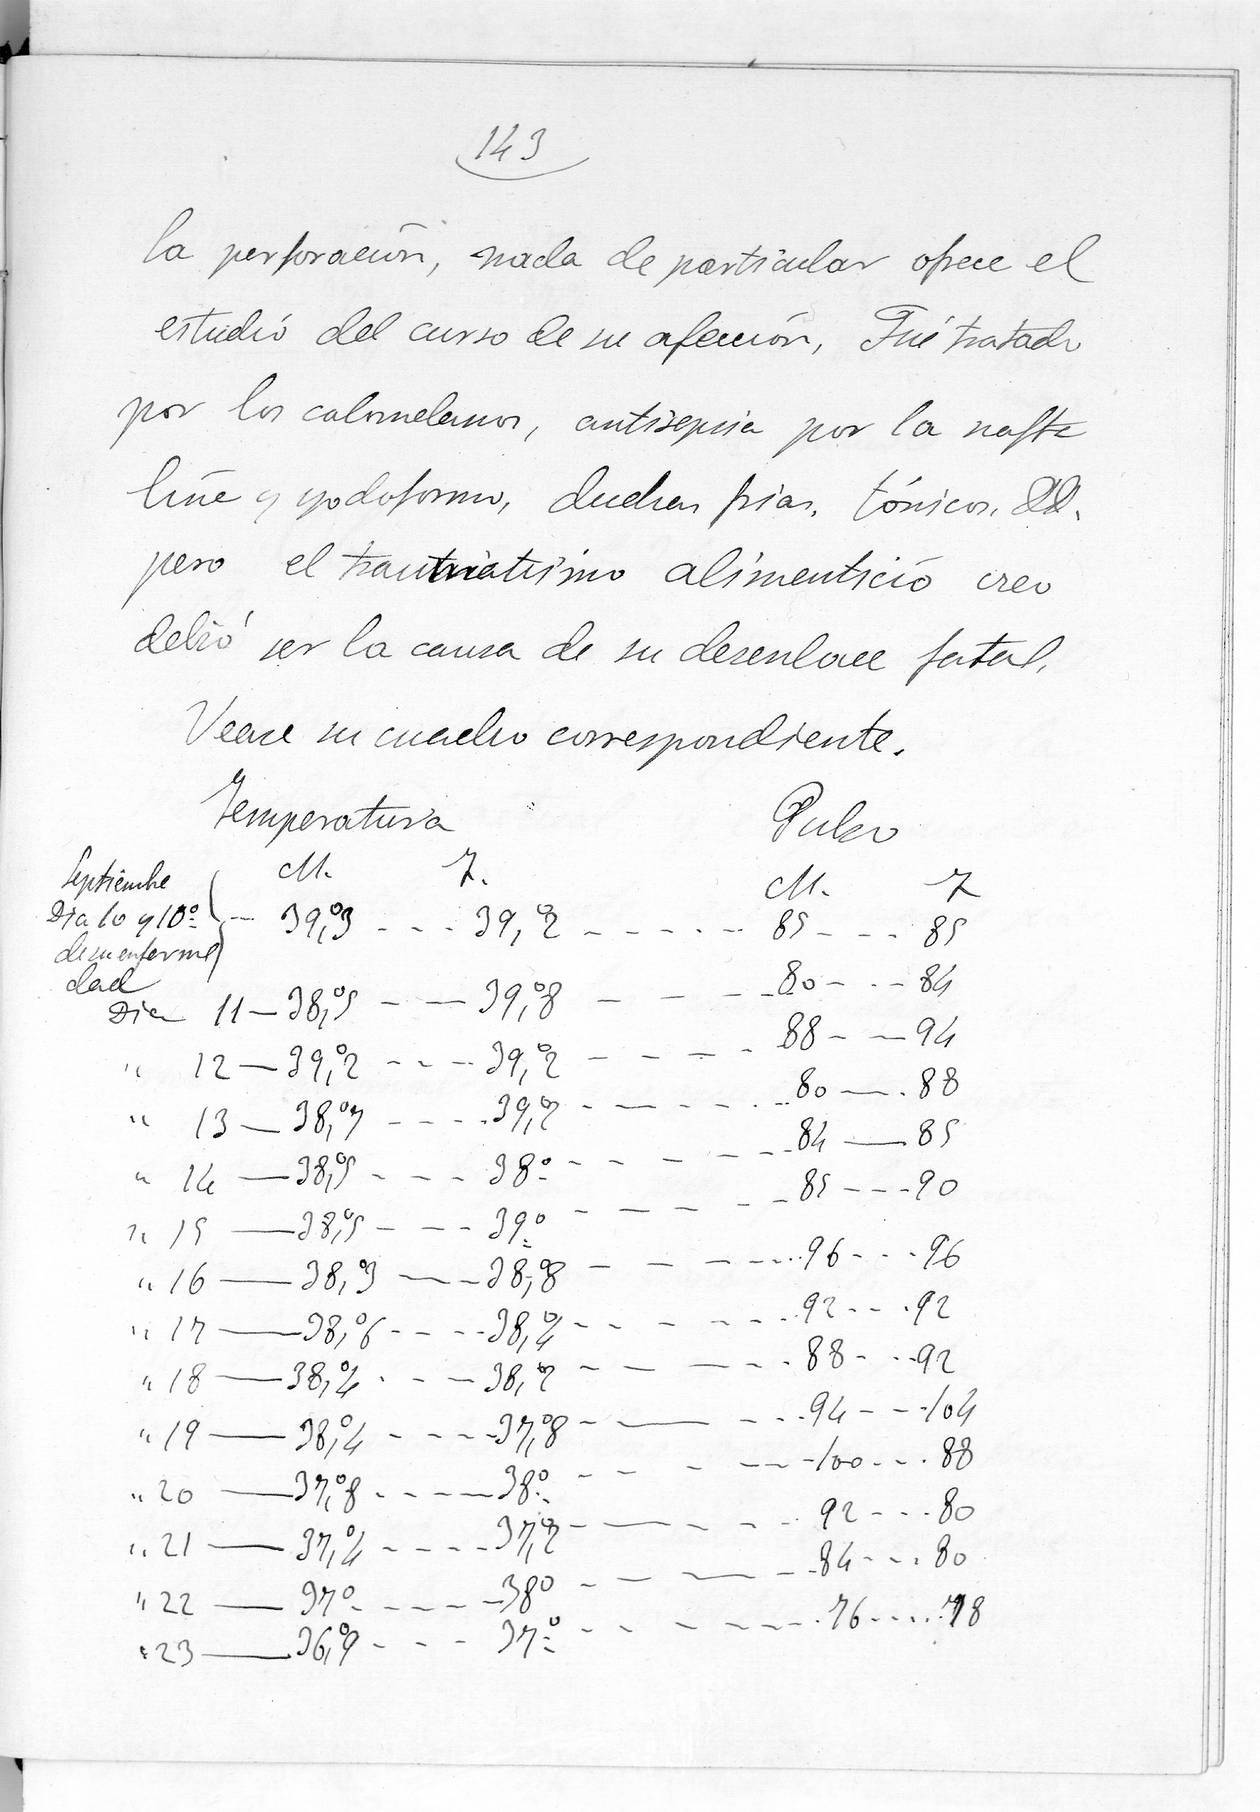 143
la perforación, nada de particular ofrece el
estudio del curso de su afección, Fué tratado
por los calomelanos, antisepsia por la nafta
lina y yodoformo, duchas frias, tónicos, &&.
pero el traumatismo alimenticio creo
debió ser la causa de su desenlace fatal.
Vease su cuadro correspondiente.
Temperatura Pulso
M. T. M. T
Septiembre
Dia 10 y 10º — 39,º3 - - - 39,º2 - - - - - 85 - - - 85
de su enferme
dad
Dia 11 — 38,º5 - - 39,º8 - - - 80 - - - 84
" 12 — 39,º2 - - - 39,º2 - - - - 88 - - 94
" 13 — 38,º7 - - - 39,º2 - - - - 80 — 88
" 14 — 38,º5 - - - 38º - - - - 84 — 85
" 15 — 38,º5 - - - 39º - - - - 85 - - - 90
" 16 — 38,º3 - - - 38,º8 - - - - 96 - - - 96
" 17 — 38,º6 - - - 38,º4 - - - - 92 - - - 92
" 18 — 38,º4 - - - 38,º2 - - - - 88 - - - 92
" 19 — 38,º4 - - - 37,º8 - — - - 94 - - - 104
" 20 — 37,º8 - - - 38º - - - - 100 - - - 88
" 21 — 37,º4 - - - 37,º2 - — - - 92 - - - 80
" 22 — 37º - - - 38º - - — - 84 - - - 80
" 23 — 36,º9 - - - 37º - - - - 76 - - - 78